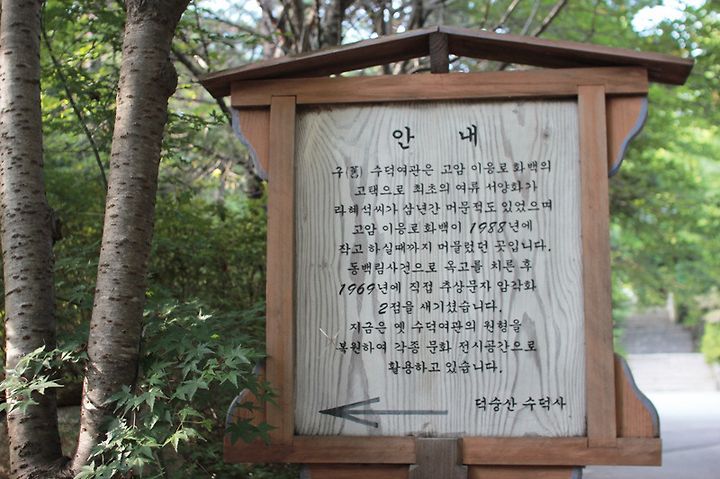 안 내
구(舊) 수덕여관은 고암 이응로 화백의
고택으로 최초의 여류 서양화가
라혜석씨가 삼년간 머문적도 있었으며
고암 이응로화백이 1988년에
작고 하실때까지 머물렀던 곳입니다.
동백림사건으로 옥고를 치른 후
1969년에 직접 추상문자 암각화
2점을 새기셨습니다.
지금은 옛 수덕여관의 원형을
복원하여 각종 문화 전시공간으로
활용하고 있습니다.
덕숭산 수덕사.